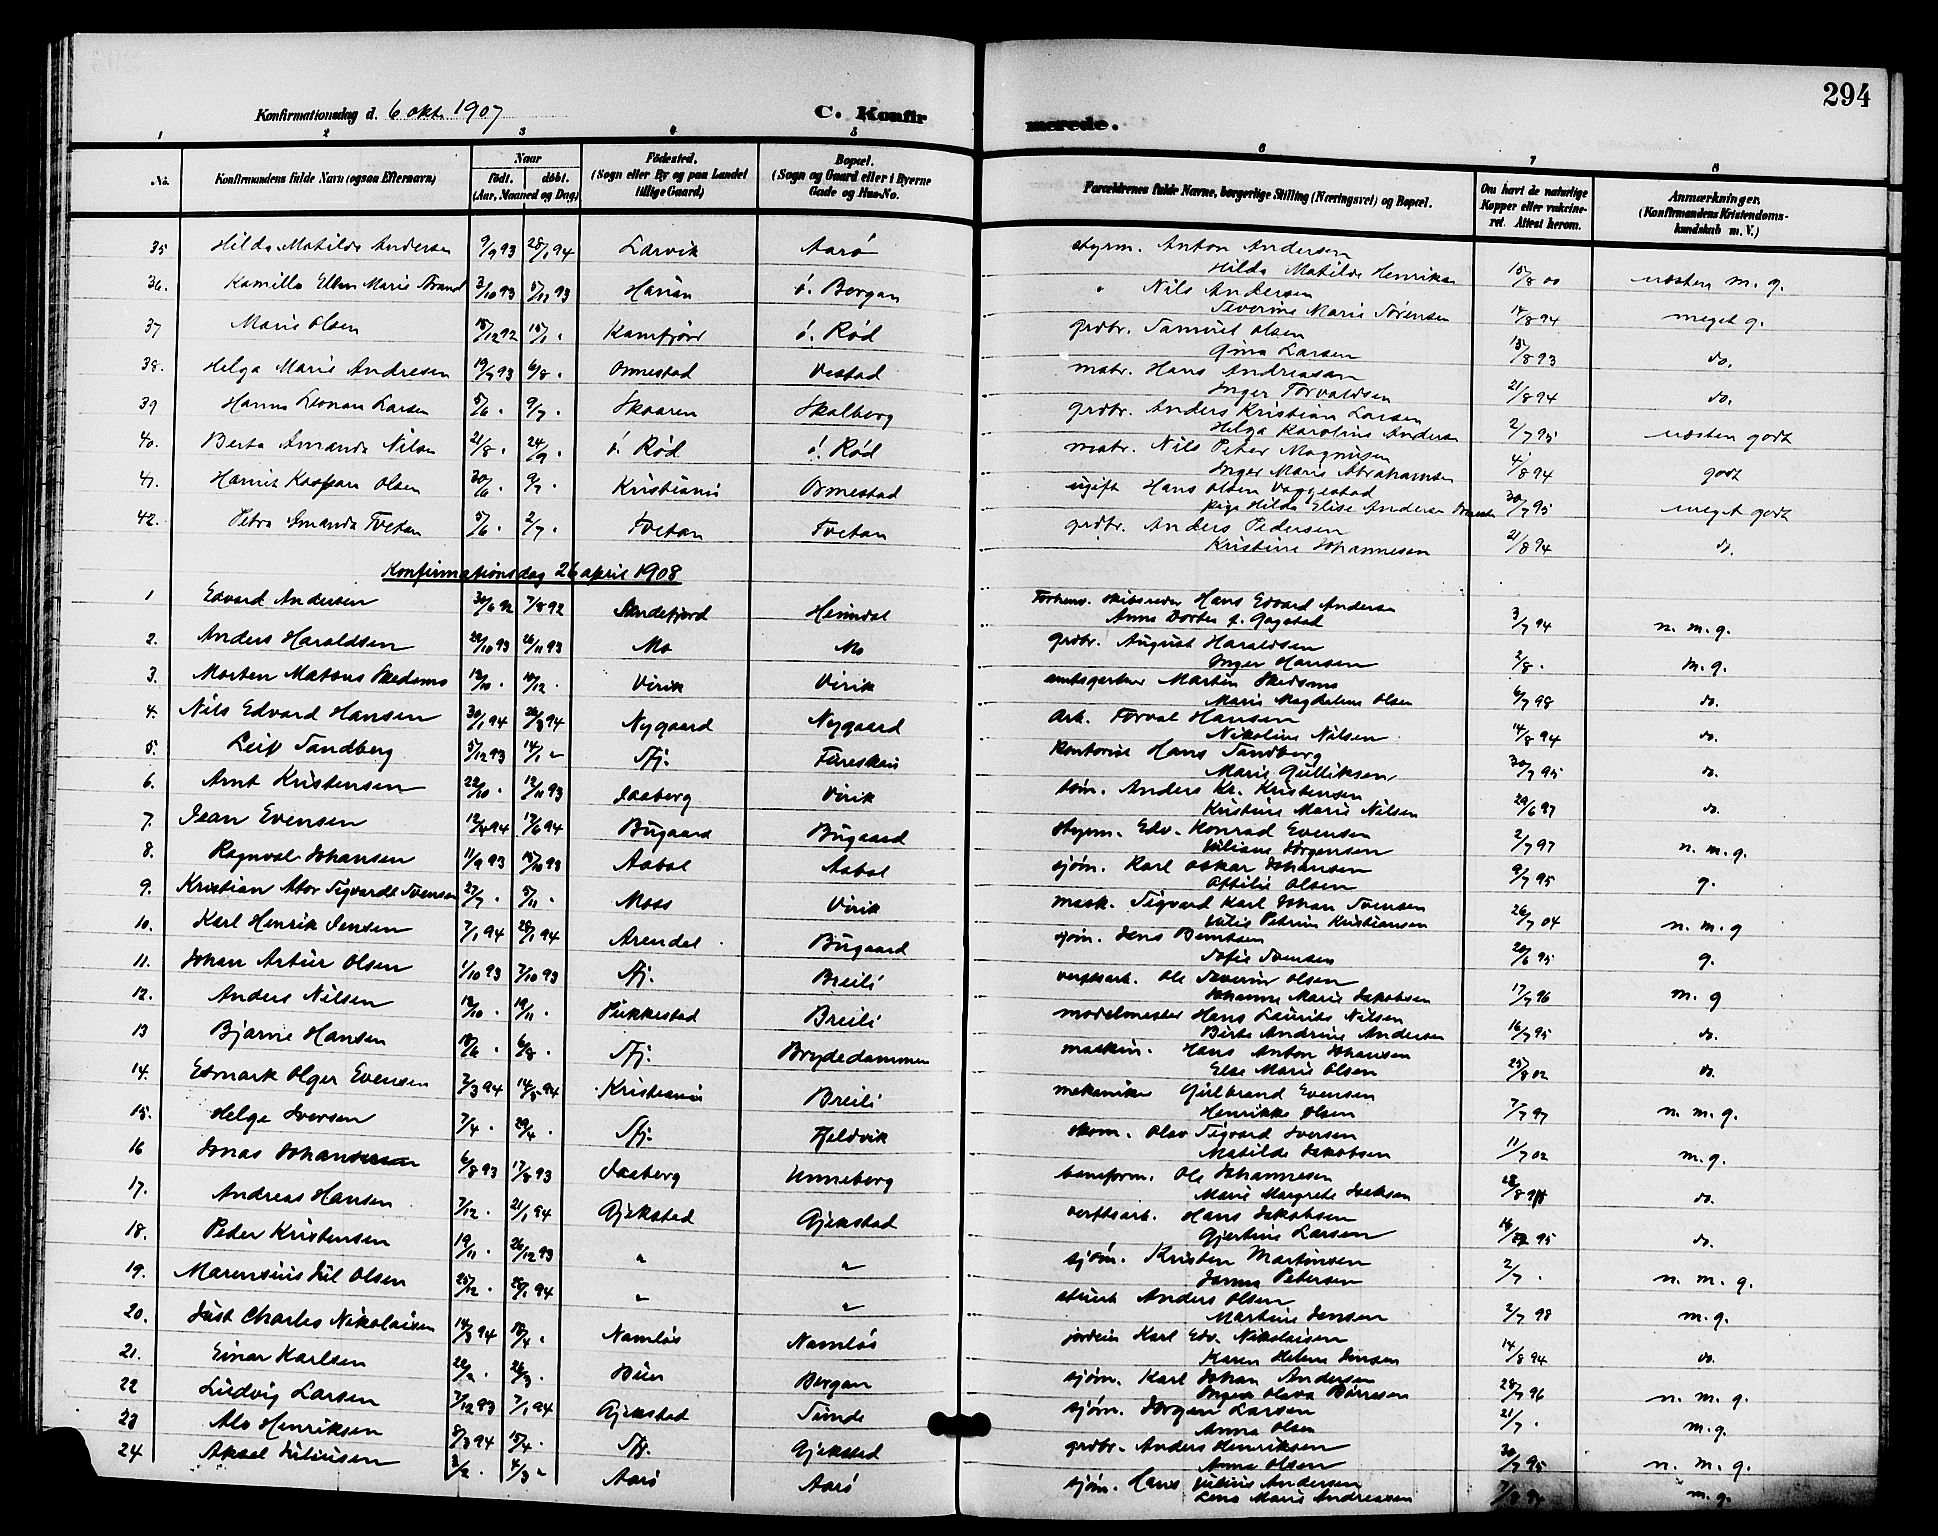 294
Konfirmationsdag d. 6 okt. 1907
C. Konfirmerede.
1 2 3 4 5 6 7 8
No. Konfirmandens fulde Navn (ogsaa Efternavn) Naar født. døbt. (Aar, Maaned og Dag) Fødested. (Sogn eller By og paa Landet tillige Gaard) Bopæl. (Sogn og Gaard eller i Byerne Gade og Hus-No. Forældrenes fulde Navne, borgerlige Stilling (Næringsvei) og Bopæl. Om havt de naturlige Kopper eller vakcineret. Attest herom. Anmærkninger. (Konfirmandens Kristendomskundskab m. V.)
35 Hilda Matilde Andersen 9/9 93 28/1 94 Larvik Aarø styrm. Anton Andersen
Hilda Matilde Henriksen 15/8 00 næsten m. g.
36. Kamilla Ellen Marie 3/10 93 5/11 93 Havan ø. Bergan " Nils Andersen
Severine Marie Sørensen 14/8 94 meget g.
37 Marie Olsen 15/12 92 15/1 . Kamfjord ø. Rød grdbr. Samuel Olsen
Gina Larsen 15/8 93 do.
38. Helga Marie Andresen 19/7 93 6/8 . Ormestad Vestad matr. Hans Andreasen
Inger Torvaldsen 21/8 94 do.
39 Hanna Leonore Larsen 5/6 . 9/7 . Skaaren Skalberg grdbr. Anders Kristian Larsen
Helga Karoline Andersen 2/7 95 næsten godt
40. Berta Amanda Nilsen 21/8 . 24/9 . ø. Rød ø. Rød matr. Nils Peter Magnusen
Inger Marie Abrahamsen 4/8 94 godt
41. Harriet Kaspara Olsen 30/6 . 9/7 . Kristiania Ormestad ugift Hans Olsen Vaggestad
pige Hilda Elise Andersen 30/7 95 meget godt
42. Petra Amanda Tvetan 5/6 . 2/7 . Tvetan Tvetan grdbr. Anders Pedersen
Kristine Johannesen 21/8 94 do.
Konfirmationsdag 26 april 1908
1 Edvard Andersen 30/6 92 7/8 92 Sandefjord Heimdal Forhenv. skibsreder Hans Edvard Andersen
Anna Dortea f. Gogstad 3/7 94 n. m. g.
2. Anders Haraldsen 22/10 93 26/11 93 Mo Mo grdbr. August Haraldsen
Inger Hansen 2/8 . m. g.
3. Morten Matæus Skedsmo 12/10 . 10/12 . Virik Virik amtsgartner Martin Skedsmo
Marie Magdalene Olsen 6/7 98 do.
4. Nils Edvard Hansen 30/1 94 26/3 94 Nygaard Nygaard Arb. Torval Hansen
Nikoline Nilsen 14/8 94 do.
5. Leif Sandberg 5/12 93 14/1 " Sfj. Fureskau kontorist Hans Sandberg
Marie Gulliksen 30/7 95 do.
6. Arnt Kristensen 22/10 . 12/11 93 Skaberg Virik tøm. Anders Kr. Kristensen
Kristine Marie Nilsen 29/6 97 do.
7. Jean Evensen 12/4 94 17/6 94 Bugaard Bugaard styrm. Edv. Konrad Evensen
Juliane Jørgensen 2/7 97 n. m. g.
8. Ragnval Johansen 11/9 93 15/10 93 Aabol Aabol sjøm. Karl Oskar Johansen
Ottilie Olsen 9/7 95 g.
9. Kristian Ator Sigvardt Svensen 27/7 . 5/11 . Moss Virik mask. Sigvard Karl Johan Svensen
Julie Petrine Kristiansen 26/7 04 n. m. g
10. Karl Henrik Jensen 7/1 94 28/1 94 Arendal Bugaard sjøm. Jens Berntsen
Sofie Svensen 20/6 95 g.
11. Johan Artur Olsen 1/10 93 7/10 93 Sfj. Breili verftsarb. Ole Severin Olsen
Johanne Marie Jakobsen 17/7 96 m. g
12. Anders Nilsen 12/10 . 19/11 . Pukkestad Breili modelmester Hans Laurits Nilsen
Berte Andrine Andersen 16/7 95 do.
13 Bjarne Hansen 18/6 . 6/8 . Sfj. Brydedammen maskin. Hans Anton Johansen
Else Marie Olsen 25/8 02 do.
14. Esmark Olger Evensen 7/3 94 14/5 94 Kristiania Breili mekaniker Gulbrand Evensen
Henrikke Olsen 7/7 97 n. m. g.
15. Helge Iversen 7/4 . 29/4 . Sfj. Fjeldvik skom. Olav Sigvard Iversen
Matilde Jakobsen 11/7 02 m. g.
16 Jonas Johansen 6/8 93 17/8 93 Unneberg Ole Johannesen
Marie Margrete Isaksen do.
17. Andreas Hansen 7/12 . 21/1 94 Gjekstad Gjekstad verftsarb. Hans Jakobsen
Gjertine Larsen do.
18. Peder Kristensen 19/11 . 26/12 93 " " sjøm. Kristen Martinsen
Janna Petersen 2/7 . n. m. g.
19. Marensius Jul Olsen 25/12 . 28/1 94 " " stuert Anders Olsen
Martine Jensen 2/7 98 m. g.
20. Just Charles Nikolaisen 14/3 94 15/4 . Namløs Namløs Karl Edv. Nikolaisen
Karen Helene Jensen 14/8 94 do.
21. Einar Karlsen 22/2 . 26/3 . Huer Bergan sjøm. Karl Johan Andersen
Inger Olava Børresen 28/7 96 n. m. g.
22 Ludvig Larsen 7/12 93 7/1 94 Gjekstad Sunde sjøm. Jørgen Larsen
Anna Olsen 21/7 . m. g.
23 Alv Henriksen 8/3 94 15/4 . Sfj. Gjekstad grdbr. Anders Henriksen
Anna Olsen 30/7 95 n. m. g.
24 Aksel Juliusen 2/2 . 4/3 " Aarø Aarø sjøm. Hans Julius Andersen
Lena Marie Andreasen m. g.